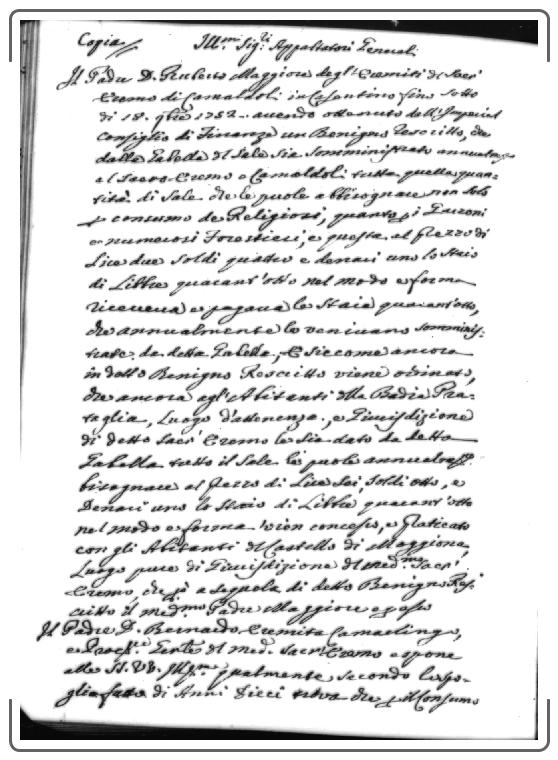 Copia Ill.mi Sig.ri Appaltatori Generali
Il Padre D. Ruberto Maggiore degl'Eremiti di Sacr'
Eremo di Camaldoli in Casentino fino sotto
di 18. 9bre 1752. avendo ottenuto dall'Imperial
Consiglio di Finanze un Benigno Rescritto, che
dalla Gabella del Sale sia somministrato annualm.te
al Sacro Eremo e Camaldoli tutta quella quan-
tità di Sale che le puole abbisognare non solo
p consumo de Religiosi, quanto p i Garzoni
e numerosi Forestieri, e questa al prezzo di
Lire due soldi quattro e denari uno lo Staio
di Libbre quarant'otto nel modo e forma
riceveva e pagava le Staia quarant'otto,
che annualmente le venivano somminis-
trate da detta Gabella, E siccome ancora
in detto Benigno Rescritto viene ordinato,
che ancora agl'Abitanti della Badia Pra-
taglia, Luogo d'attenenza, e Giurisdizione
di detto Sacr' Eremo le sia dato da detta
Gabella tutto il Sale le puole annualm.te
bisognare al prezzo di Lire Sei, Soldi otto, e
Denari uno lo Staio di Libbre quarant'otto
nel modo e forma vien concesso, e praticato
con gli Abitanti del Castello di Moggiona,
Luogo pure di Giurisdizione del med.mo Sacr'
Eremo, che p a seguela di detto Benigno Res-
critto il med.mo Padre Maggiore
Il Padre D. Bernardo Eremita Camaldolingo,
e del med. Sacr' Eremo espone
alle SS. VV. Ill.me qualmente secondo la spo-
glia fatta di Anni Dieci che p il Consumo